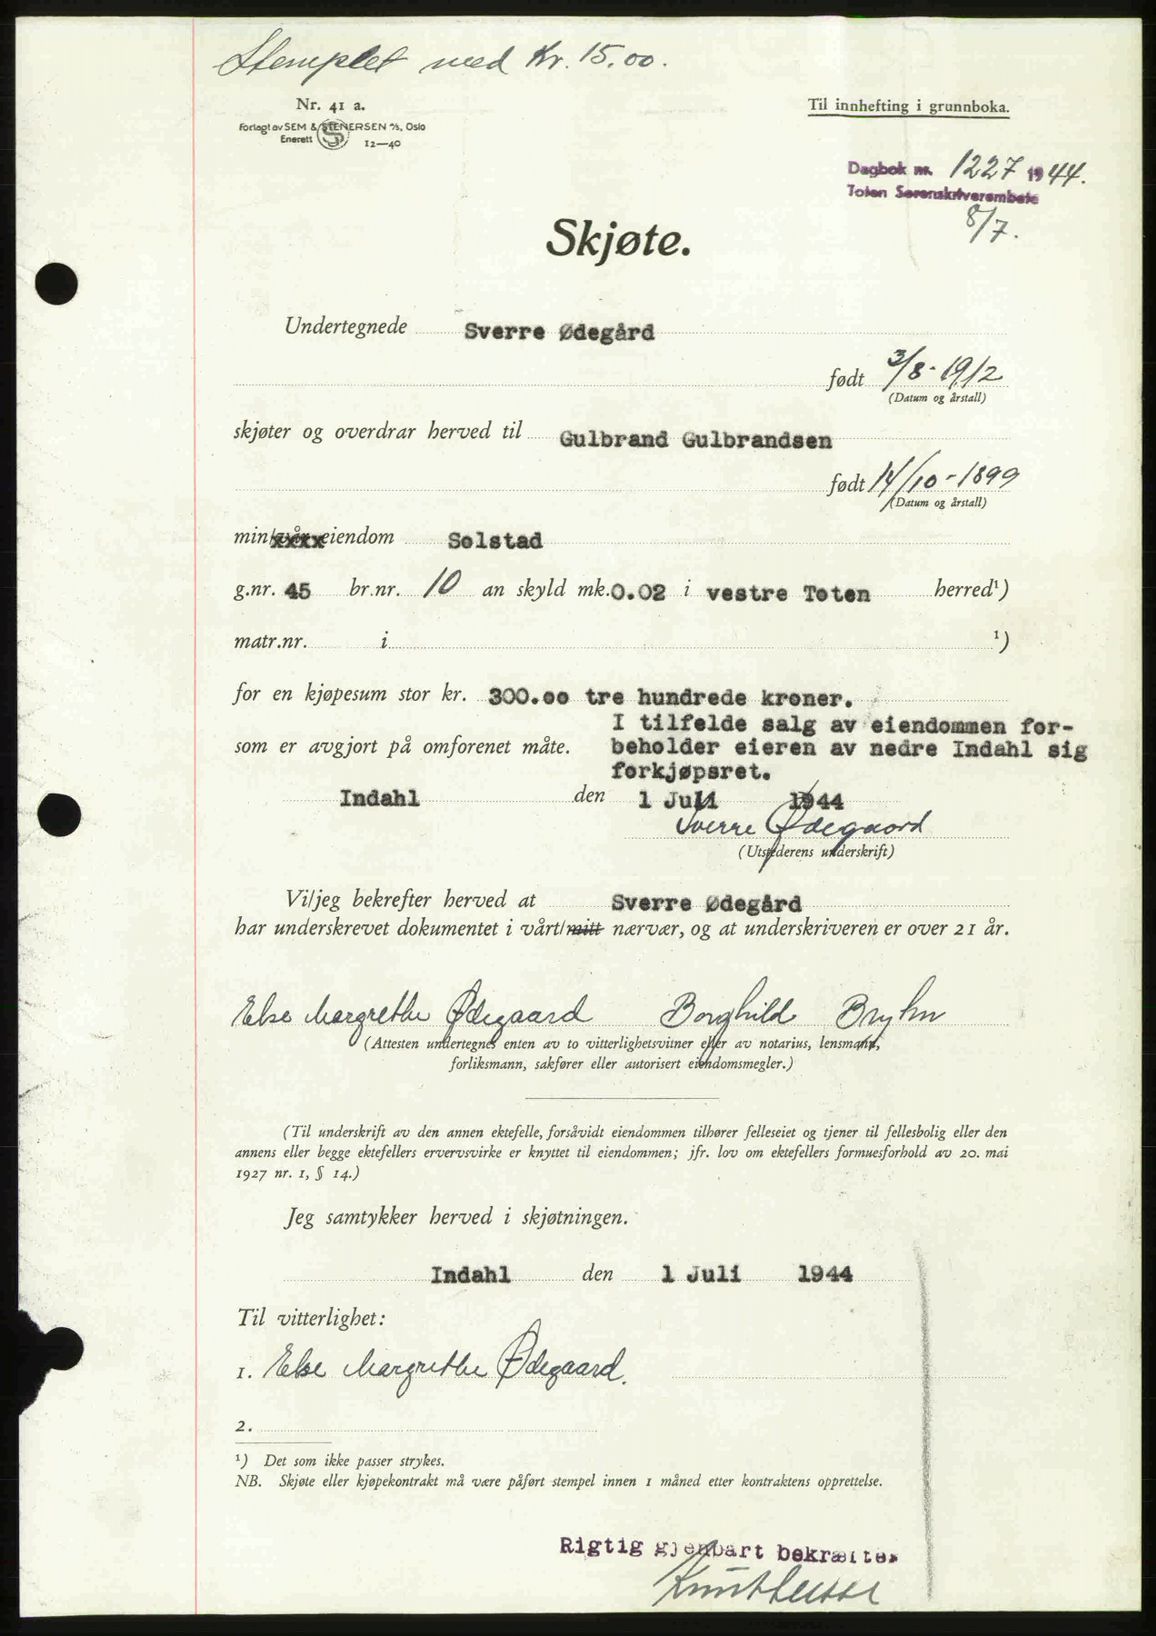 Stemplet med Kr. 15.00.
Nr. 41 a.
Forlagt av SEM & STENERSEN A/S, Oslo
Enerett S 12—40
Til innhefting i grunnboka.
Dagbok nr. 1227 1944.
Toten Sorenskriverembete
8/7.
Skjøte.
Undertegnede Sverre Ødegård
født 3/8-1912
(Datum og årstall)
skjøter og overdrar herved til Gulbrand Gulbrandsen
født 14/10-1899
(Datum og årstall)
min/vår eiendom Solstad
g.nr. 45 br.nr. 10 an skyld mk. 0.02 i vestre Toten herred¹)
matr.nr. i ¹)
for en kjøpesum stor kr. 300.00 tre hundrede kroner.
I tilfelde salg av eiendommen for-
som er avgjort på omforenet måte. beholder eieren av nedre Indahl sig
forkjøpsret.
Indahl den 1 Juli 1944
Sverre Ødegaard
(Utstederens underskrift)
Vi/jeg bekrefter herved at Sverre Ødegård
har underskrevet dokumentet i vårt/mitt nærvær, og at underskriveren er over 21 år.
Else Margrethe Ødegaard Borghild Bryhn
(Attesten undertegnes enten av to vitterlighetsvitner eller av notarius, lensmann,
forliksmann, sakfører eller autorisert eiendomsmegler.)
(Til underskrift av den annen ektefelle, forsåvidt eiendommen tilhører felleseiet og tjener til fellesbolig eller den
annens eller begge ektefellers ervervsvirke er knyttet til eiendommen; jfr. lov om ektefellers formuesforhold av 20. mai
1927 nr. 1, § 14.)
Jeg samtykker herved i skjøtningen.
Indahl den 1 Juli 1944
Til vitterlighet:
1. Else Margrethe Ødegaard.
2.
¹) Det som ikke passer strykes.
NB. Skjøte eller kjøpekontrakt må være påført stempel innen 1 måned etter kontraktens opprettelse.
Rigtig gjenpart bekræftes